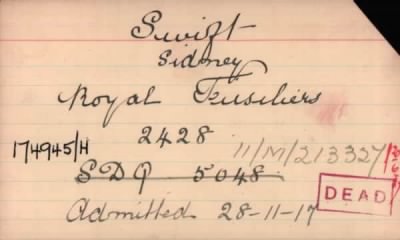 Swift
Sidney
Royal Fusiliers
2428
174945/H
11/M/213327
SDQ 5048
DEAD
Admitted 28-11-17